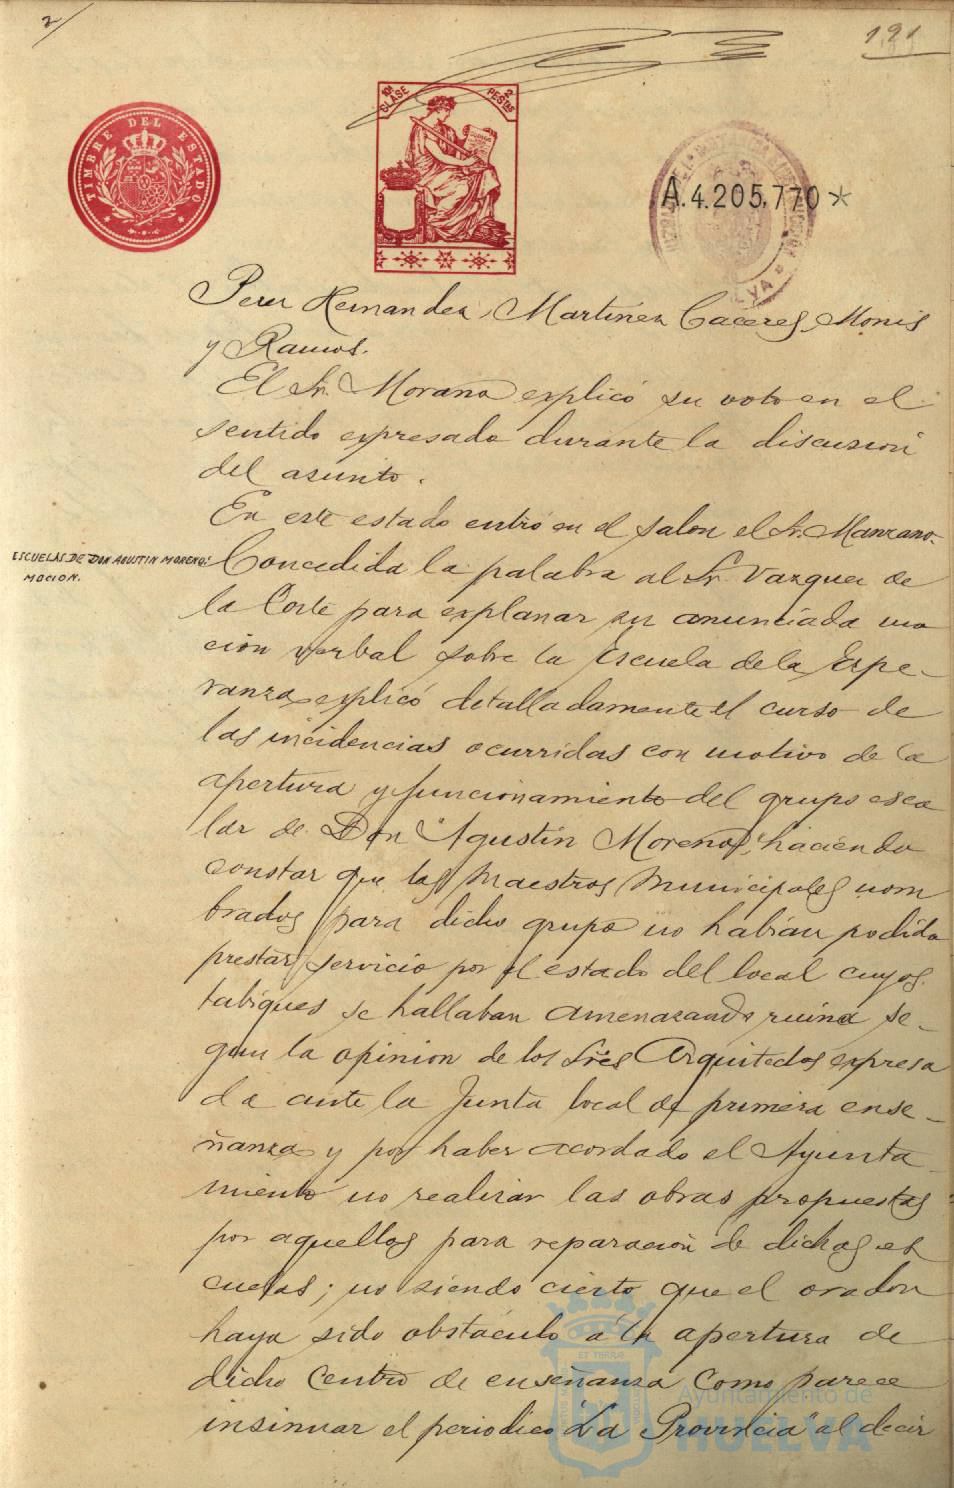 2/
191
TIMBRE DEL ESTADO
10ª CLASE
2 PESTAS
A.4.205.770*
Perez Hernandez, Martinez Caceres, Monis
y Ramos.
El Sr. Moraño explicó su voto en el
sentido expresado durante la discusión
del asunto.
En este estado entró en el salon el Sr. Manzano.
ESCUELAS DE DON AGUSTIN MORENO:
MOCION.
Concedida la palabra al Sr. Vazquez de
la Corte para explanar su anunciada mo
ción verbal sobre la Escuela de la Espe-
ranza explicó detalladamente el curso de
las incidencias ocurridas con motivo de la
apertura y funcionamiento del grupo esco
lar de Don "Agustín Moreno", haciendo
constar que los Maestros Municipales nom
brados para dicho grupo no habían podido
prestar servicio por el estado del local cuyos
tabiques se hallaban amenazando ruina se-
gun la opinion de los Sres Arquitectos expresa
da ante la Junta local de primera ense-
ñanza y por haber acordado el Ayunta-
miento no realizar las obras propuestas
por aquellos para reparación de dichas es
cuelas; no siendo cierto que el orador
haya sido obstáculo a la apertura de
dicho Centro de enseñanza como parece
insinuar el periodico "La Provincia" al decir
Ayuntamiento de
HUELVA